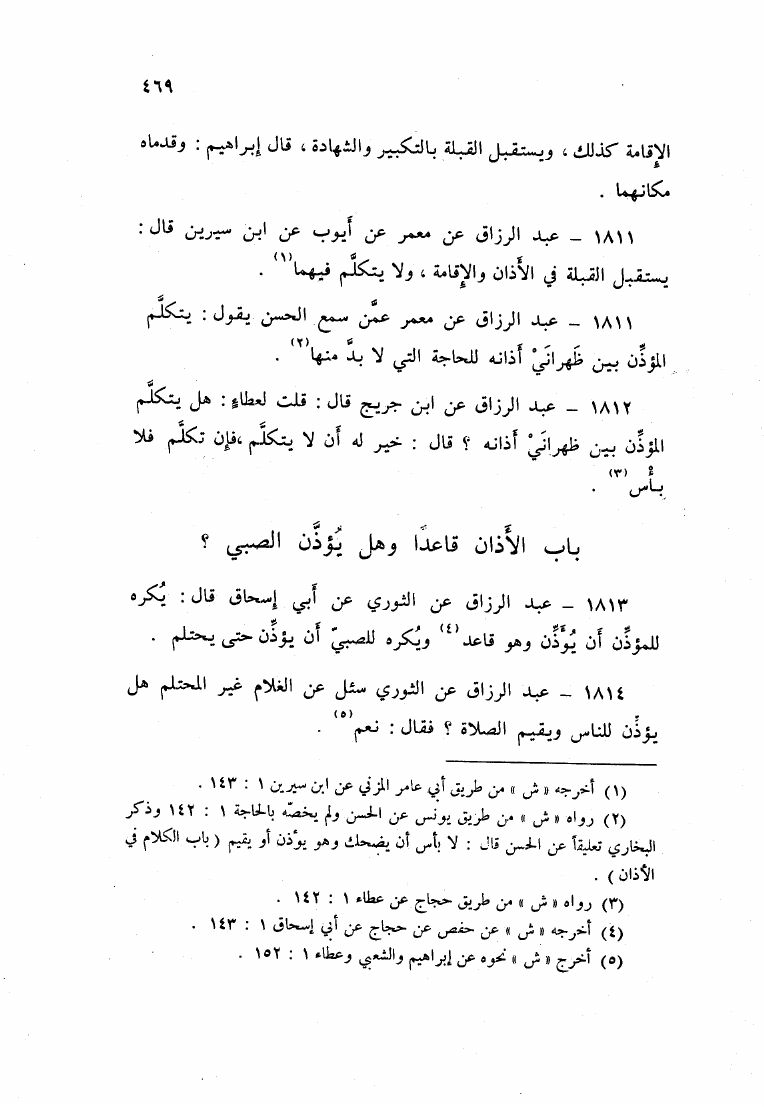 ٤٦٩
الإقامة كذلك ، ويستقبل القبلة بالتكبير والشهادة ، قال إبراهيم : وقدماه
مكانهما .
١٨١١ – عبد الرزاق عن معمر عن أيوب عن ابن سيرين قال :
يستقبل القبلة في الأذان والإقامة ، ولا يتكلَّم فيهما(١) .
١٨١١ – عبد الرزاق عن معمر عمَّن سمع الحسن يقول : يتكلَّم
المؤذِّن بين ظَهرانَيْ أذانه للحاجة التي لا بدَّ منها(٢) .
١٨١٢ – عبد الرزاق عن ابن جريج قال : قلت لعطاءٍ : هل يتكلَّم
المؤذِّن بين ظهرانَيْ أذانه ؟ قال : خير له أن لا يتكلَّم ،فإن تكلَّم فلا
بأْس(٣) .
باب الأذان قاعدًا وهل يُؤذَّن الصبي ؟
١٨١٣ – عبد الرزاق عن الثوري عن أبي إسحاق قال : يُكره
للمؤذِّن أن يُؤَذِّن وهو قاعد(٤) ويُكره للصبيّ أن يؤذِّن حتى يحتلم .
١٨١٤ – عبد الرزاق عن الثوري سئل عن الغلام غير المحتلم هل
يؤذِّن للناس ويقيم الصلاة ؟ فقال : نعم(٥) .
(١) أخرجه « ش » من طريق أبي عامر المزني عن ابن سيرين ١ : ١٤٣ .
(٢) رواه « ش » من طريق يونس عن الحسن ولم يخصّه بالحاجة ١ : ١٤٢ وذكر
البخاري تعليقاً عن الحسن قال : لا بأس أن يضحك وهو يؤذن أو يقيم ( باب الكلام في
الأذان ) .
(٣) رواه « ش » من طريق حجاج عن عطاء ١ : ١٤٢ .
(٤) أخرجه « ش » عن حفص عن حجاج عن أبي إسحاق ١ : ١٤٣ .
(٥) أخرج « ش » نحوه عن إبراهيم والشعبي وعطاء ١ : ١٥٢ .